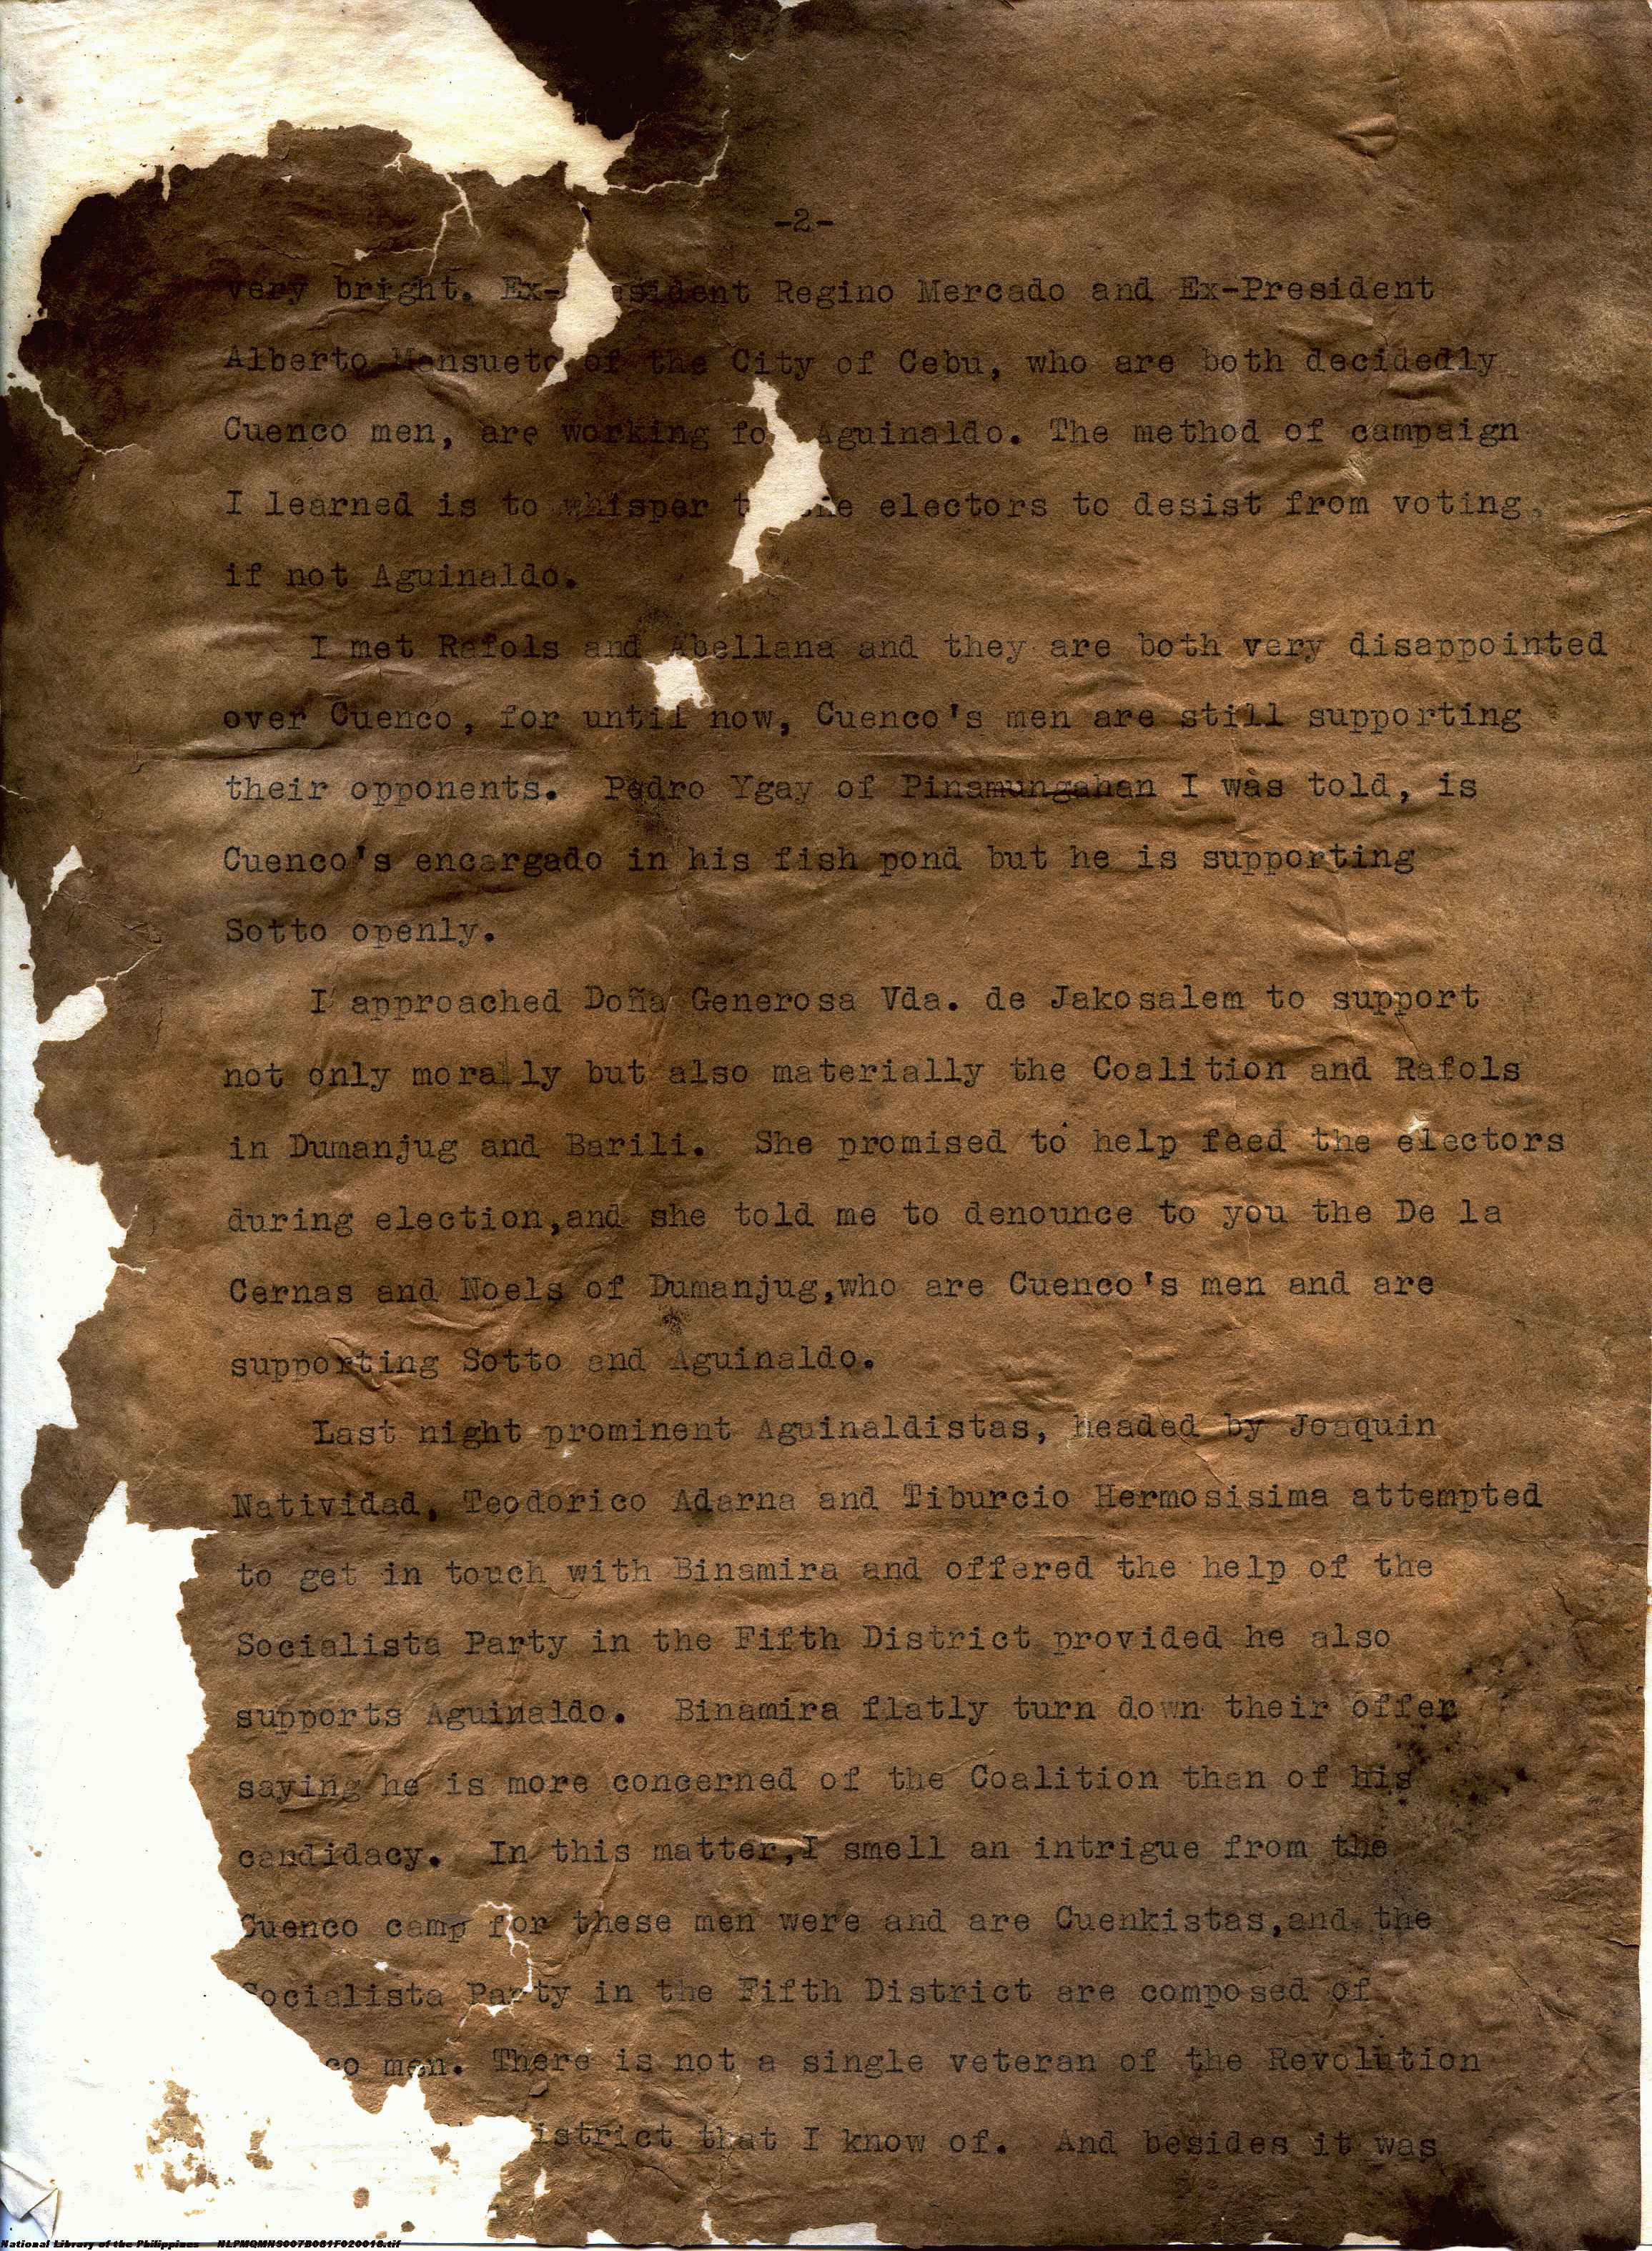 -2-
very bright. Ex- Regino Mercado and Ex-President
Alberto Mansueto of the City of Cebu, who are both decidedly
Cuenco men, are working Aguinaldo. The method of campaign
I learned is to whisper electors to desist from voting,
if not Aguinaldo.
I met Rafols and Abellana and they are both very disappointed
over Cuenco, for until now, Cuenco's men are still supporting
their opponents. Pedro Ygay of Pinamungahan I was told, is
Cuenco's encargado in his fish pond but he is supporting
Sotto openly.
I approached Doña Generosa Vda. de Jakosalem to support
not only morally but also materially the Coalition and Rafols
in Dumanjug and Barili. She promised to help feed the electors
during election,and she told me to denounce to you the De la
Cernas and Noels of Dumanjug,who are Cuenco's men and are
supporting Sotto and Aguinaldo.
Last night prominent Aguinaldistas, headed by Joaquin
Natividad, Teodorico Adarna and Tiburcio Hermosisima attempted
to get in touch with Binamira and offered the help of the
Socialista Party in the Fifth District provided he also
supports Aguinaldo. Binamira flatly turn down their offer
saying he is more concerned of the Coalition than of his
candidacy. In this matter,I smell an intrigue from the
Cuenco camp for these men were and are Cuenkistas,and the
Socialista Party in the Fifth District are composed of
men. There is not a single veteran of the Revolution
that I know of. And besides it was
National Library of the Philippines NLPMQMNS007B081F020018.tif